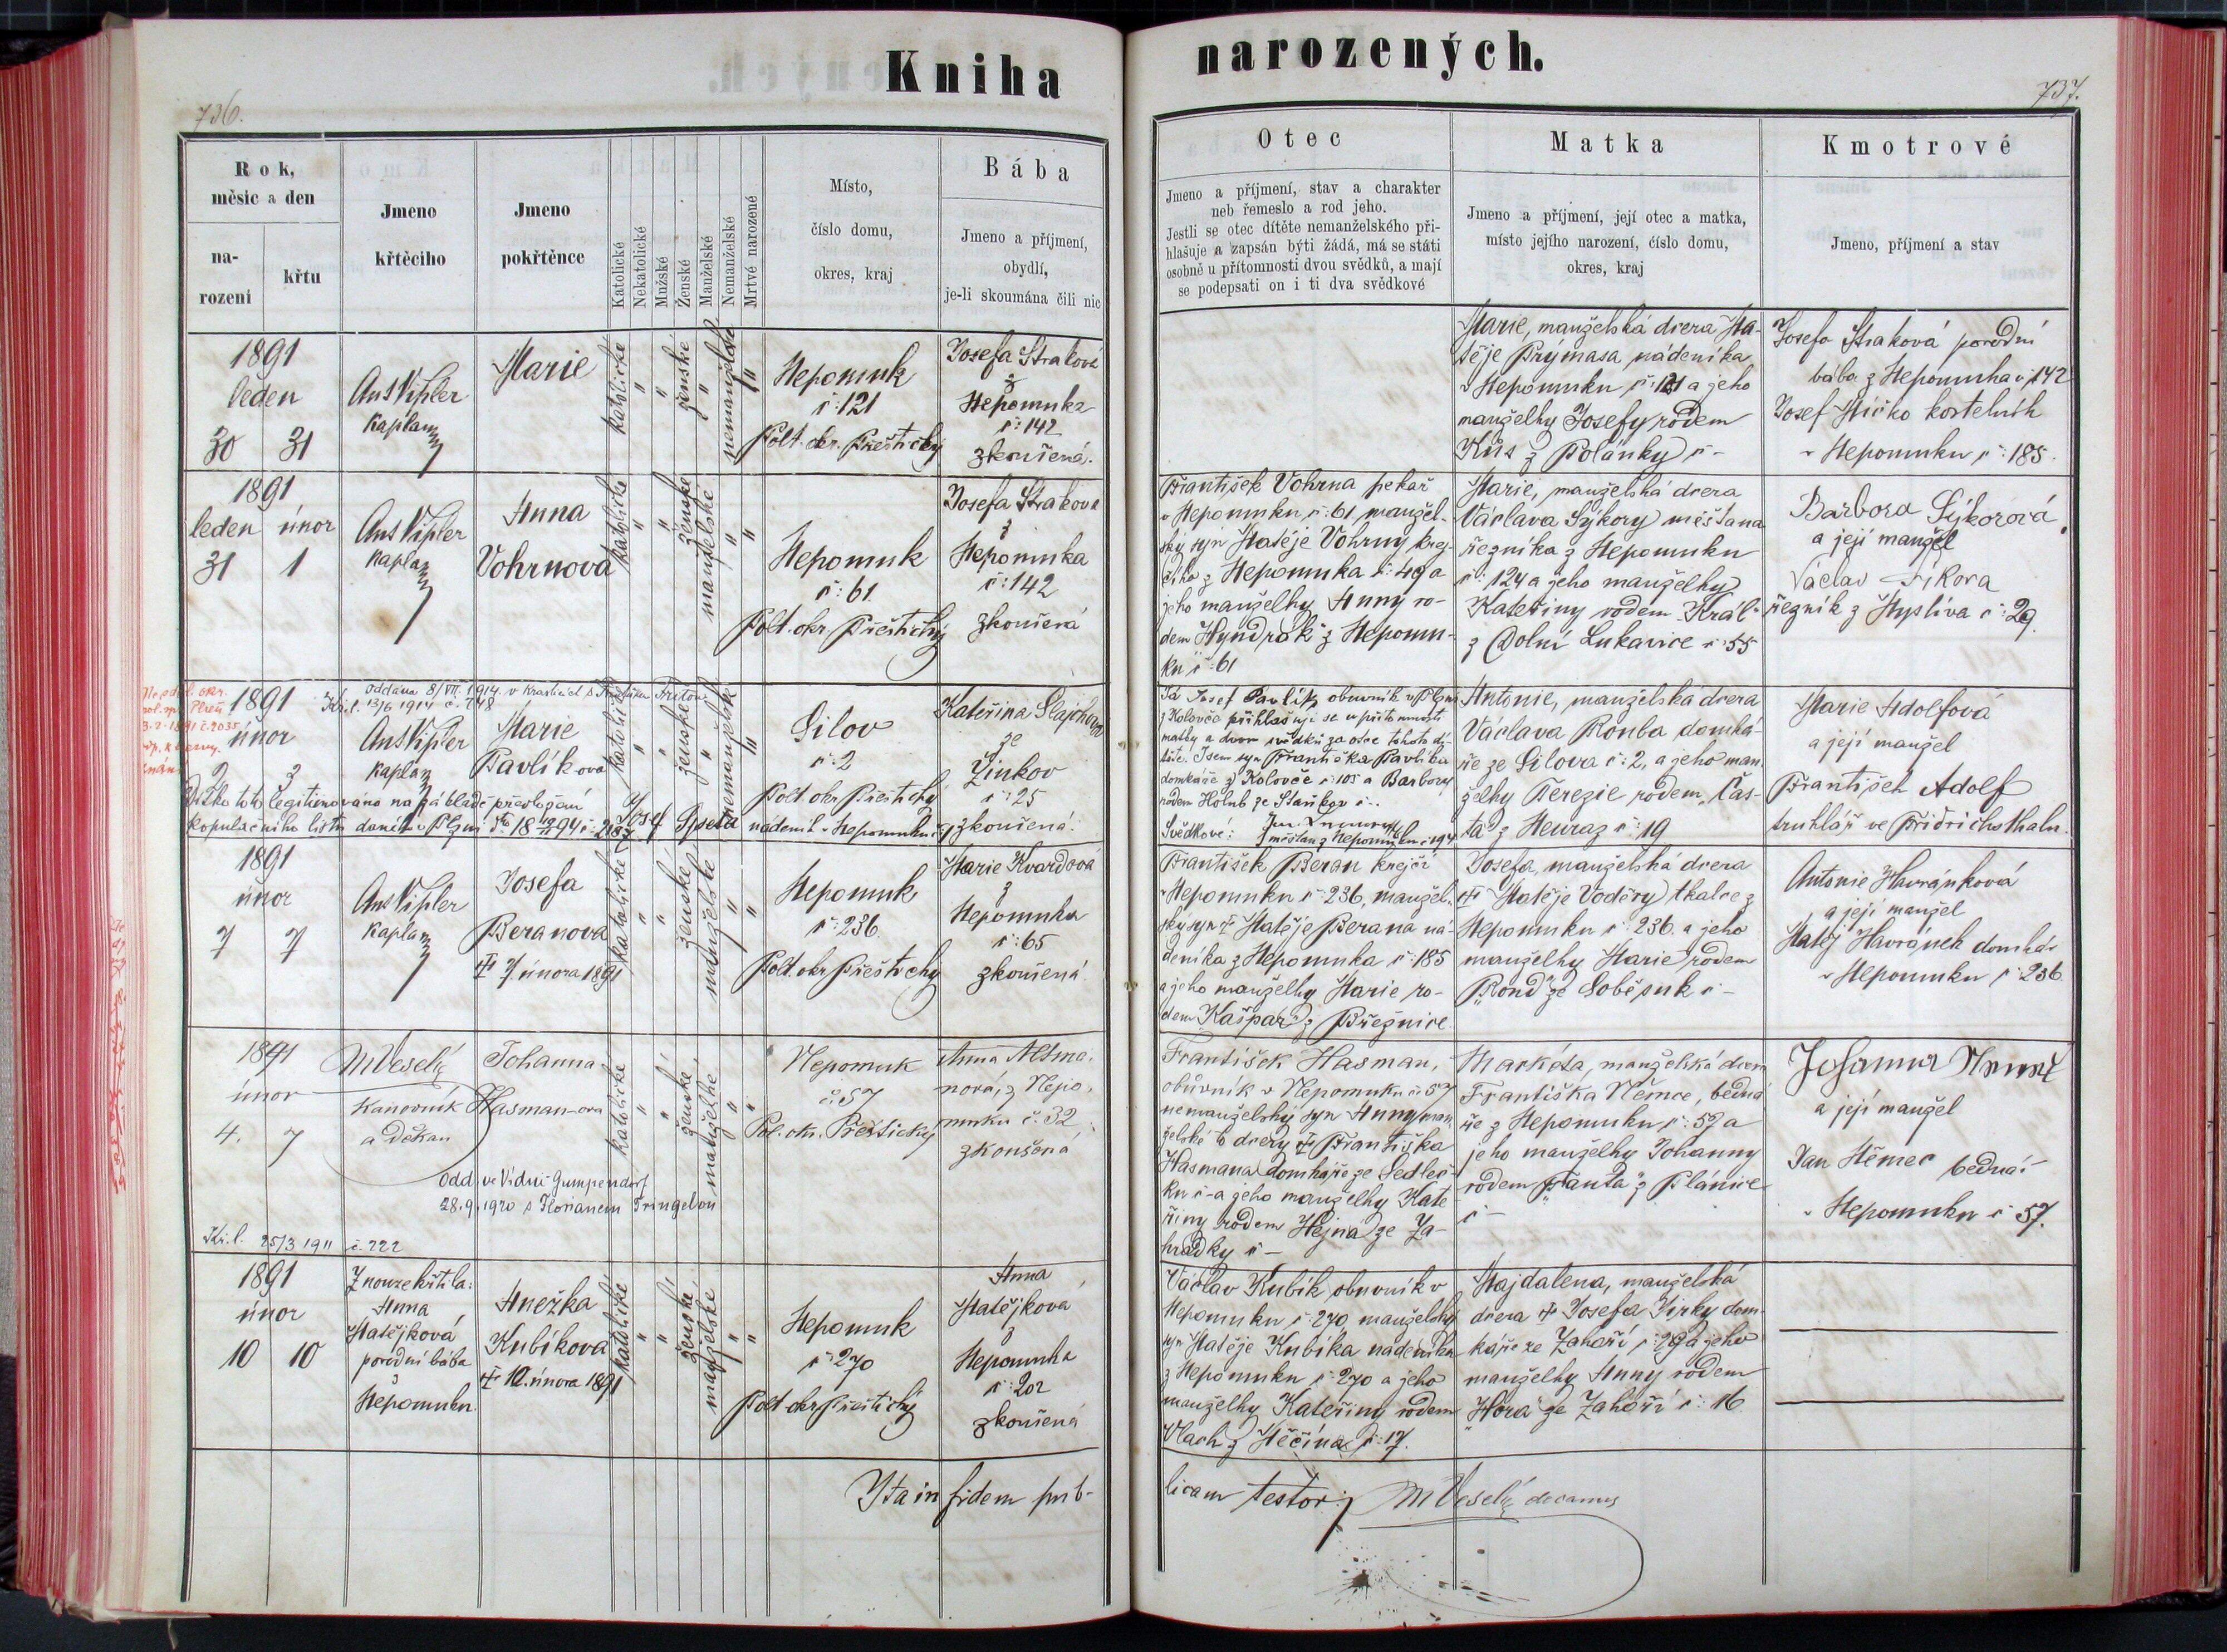 Kniha
736.
Rok,
měsíc a den
na-
rození
křtu
Jmeno
křtěcího
Jmeno
pokřtěnce
Katolické
Nekatolické
Mužské
Ženské
Manželské
Nemanželské
Mrtvé narozené
Místo,
číslo domu,
okres, kraj
Bába
Jmeno a příjmení,
obydlí,
je-li skoumána čili nic
1891
leden
30 31
Ant Vipler
kaplan
Marie
katolické
" "
ženské
"
nemanželské
"
Nepomuk
č: 121
Polt. okr. Přeštický
Josefa Straková
z
Nepomuka
č: 142
zkoušená.
1891
leden únor
31 1
Ant Vipler
kaplan
Anna
Vohrnová
katolické
" "
ženské
manželské
" "
Nepomuk
č: 61
Polt. okr. Přeštický
Josefa Straková
z
Nepomuka
č: 142
zkoušená
oddána 8/VII. 1914. v
Kř. l. 13/6 1914 č. 748
1891
únor
2 3
Ant Vipler
kaplan
Marie
Pavlíková
katolické
" "
ženské
"
nemanželské
"
Silov
č: 2
Polt. okr. Přeštický
Kateřina
ze
Žinkov
č: 25
zkoušená.
Dítko toto legitimováno na základě předložení
kopulačního listu daného v Plzni
Josef Speta nádeník v Nepomuku
1891
únor
7 7
Ant Vipler
kaplan
Josefa
Beranova
† 7. února 1891
katolické
" "
ženské
manželské
" "
Nepomuk
č: 236
Polt. okr. Přeštický
Marie Kvardová
z
Nepomuka
č: 65
zkoušená
1891
únor
4. 7
MVeselý
kanovník
a děkan
Johanna
Hasman-ova
katolické
" "
ženské
manželské
" "
Nepomuk
č. 57
Pol. okr. Přeštický
Anna Altma-
nová, z Nepo-
muku č. 32
zkoušená
odd. ve Vídni-Gumpendorf
28.9.1920 s Florianem Tringelou
Kř. l. 25/3 1911 č. 222
1891
únor
10 10
Z nouze křtila:
Anna
Matějková
porodní bába
z
Nepomuku
Anežka
Kubíkova
† 12. února 1891
katolické
" "
ženské
manželské
" "
Nepomuk
č: 270
Polt okr Přeštický
Anna
Matějková
z
Nepomuka
č: 202
zkoušená
Ita in fidem pub-
narozených.
737.
Otec
Jmeno a příjmení, stav a charakter
neb řemeslo a rod jeho.
Jestli se otec dítěte nemanželského při-
hlašuje a zapsán býti žádá, má se státi
osobně u přítomnosti dvou svědků, a mají
se podepsati on i ti dva svědkové
Matka
Jmeno a příjmení, její otec a matka,
místo jejího narození, číslo domu,
okres, kraj
Kmotrové
Jmeno, příjmení a stav
Marie, manželská dcera Ma-
těje Prýmasa nádeníka
v Nepomuku č: 121 a jeho
manželky Josefy rodem
Kůs z Polánky č -
Josefa Straková porodní
bába z Nepomuka č: 142
Josef Mičko kostelník
v Nepomuku č: 185.
František Vohrna pekař
v Nepomuku č: 61, manžel-
ský syn Matěje Vohrny krej-
čího z Nepomuka č: 49 a
jeho manželky Anny ro-
dem Hyndrák z Nepomu-
ku č: 61
Marie, manželská dcera
Václava Sýkory měšťana
řezníka z Nepomuku
č: 124 a jeho manželky
Kateřiny rodem "Král"
z Dolní Lukavice č: 55
Barbora Sýkorová
a její manžel
Václav Sýkora
řezník z Myslíva č: 29.
Já Josef Pavlík obuvník v Plzni
z Koloveče přihlašuji se u přítomnosti
matky a dvou svědků za otce tohoto dí-
těte. Jsem syn Františka Pavlíka
domkáře z Koloveče č: 105 a Barbory
rodem Holub ze Staňkov č -.
Svědkové:
měšťan z Nepomuku č: 194
Antonie, manželská dcera
Václava Rouba domká-
ře ze Silova č: 2, a jeho man-
želky Terezie rodem "Čás-
ta" z Neuraz č: 19
Marie Adolfová
a její manžel
František Adolf
truhlář ve Fridrichsthalu.
František Beran krejčí
v Nepomuku č: 236, manžel-
ský syn † Matěje Berana ná-
deníka z Nepomuka č: 185
a jeho manželky Marie ro-
dem "Kašpar" z Březnice
Josefa, manželská dcera
† Matěje Voděry tkalce z
Nepomuku č: 236. a jeho
manželky Marie rodem
"Rond" ze Soběsuk č -
Antonie Havránková
a její manžel
Matěj Havránek domkář
v Nepomuku č: 236
František Hasman,
obuvník v Nepomuku č: 57
nemanželský syn Anny man-
želské to dcery † Františka
Hasmana domkáře ze Sedleč-
ku č - a jeho manželky Kate-
řiny rodem Hejna ze Za-
hrádky č -
Markéta, manželská dcera
Františka Němce, bedná-
ře z Nepomuku č: 57 a
jeho manželky Johanny
rodem "Fanta" z Plánice
č -
Johanna
a její manžel
Jan Němec bednář
v Nepomuku č 57.
Václav Kubík obuvník v
Nepomuku č: 270 manželský
syn Matěje Kubíka nádeníka
z Nepomuku č: 270 a jeho
manželky Kateřiny rodem
Vlach z Měčína č: 17.
Majdalena, manželská
dcera † Josefa Jirky dom-
káře ze Zahoří č: 29 a jeho
manželky Anny rodem
"Hora" ze Zahoří č: 16
licam testor
MVeselý decanus